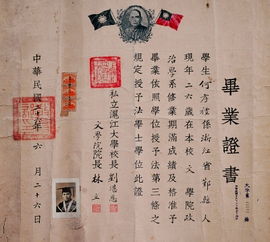 畢業證書
學生何孝禮係浙江省鄞縣人
現年二六歲在本校文學院政
治學系修業期滿成績及格准予
畢業依照學位授予法第三條之
規定授予法學士學位此證
私立滬江大學校長劉湛恩
文學院院長林立
中華民國二十六年六月二十六日